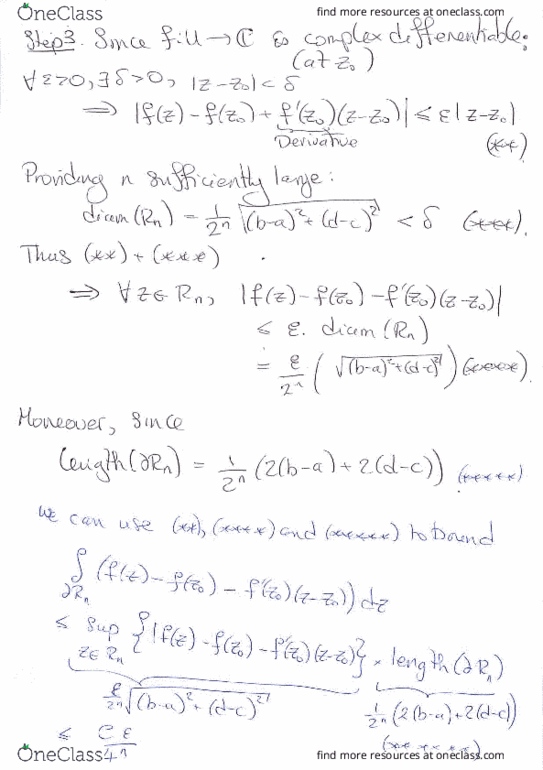 OneClass find more resources at oneclass.com
Step 3. Since f: U → ℂ is complex differentiable:
(at z₀)
∀ε>0, ∃δ>0, |z-z₀| < δ
⟹ |f(z) - f(z₀) + f'(z₀)(z-z₀)| ≤ ε|z-z₀|
Derivative (**)
Providing n sufficiently large:
diam(Rₙ) = 1/2ⁿ √((b-a)² + (d-c)²) < δ (***).
Thus (**) + (***) .
⟹ ∀z∈Rₙ, |f(z) - f(z₀) - f'(z₀)(z-z₀)|
≤ ε. diam(Rₙ)
= ε/2ⁿ (√((b-a)² + (d-c)²)) (****).
Moreover, since
length(∂Rₙ) = 1/2ⁿ (2(b-a) + 2(d-c)) (*****)
we can use (**), (****) and (*****) to bound
∫_∂Rₙ (f(z) - f(z₀) - f'(z₀)(z-z₀)) dz
≤ sup_{z∈Rₙ} {|f(z) - f(z₀) - f'(z₀)(z-z₀)|} × length(∂Rₙ)
ε/2ⁿ √((b-a)² + (d-c)²) 1/2ⁿ (2(b-a) + 2(d-c))
≤ Cε/4ⁿ (*****)
OneClass find more resources at oneclass.com